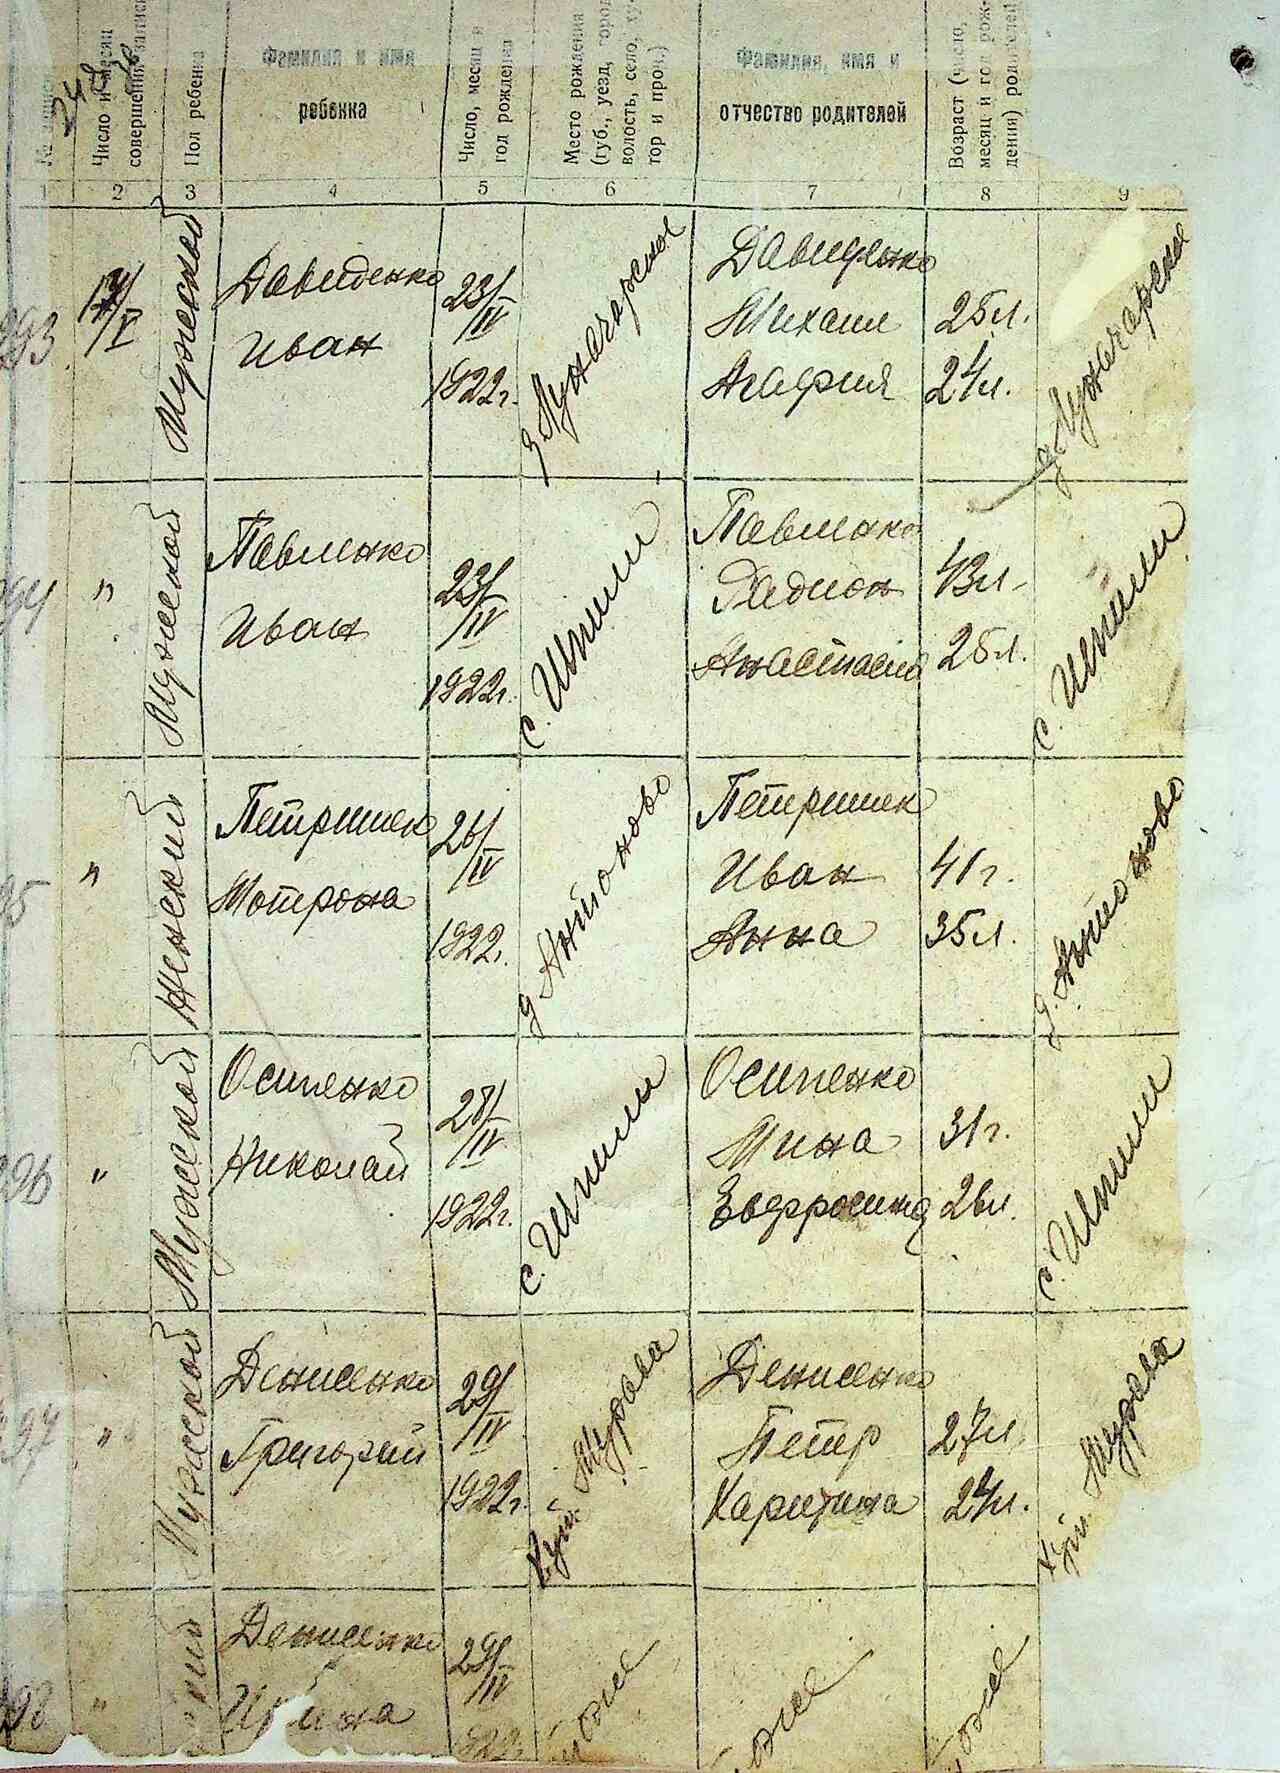 248
Число и месяц совершения записи
Пол ребенка
Фамилия и имя
ребенка
Число, месяц и год рождения
Место рождения (губ., уезд, город, волость, село, хутор и проч.)
Фамилия, имя и
отчество родителей
Возраст (число, месяц и год рождения) родителей
1 2 3 4 5 6 7 8 9
293
17/V
Мужеской
Давиденко
Иван
23/IV
1922г.
Луначарское
Давиденко
Михаил 25л.
Агафия 24л.
Луначарское
294
"
Мужеской
Павленко
Иван
23/IV
1922г.
с. Шпили
Павленко
Радион 43л.
Анастасия 25л.
с. Шпили
95
"
Женский
Петришек
Мотрона
26/IV
1922г.
д Антоново
Петришек
Иван 41г.
Анна 35л.
д. Антоново
296
"
Мужеской
Осипенко
Николай
28/IV
1922г.
с. Шпили
Осипенко
Мина 31г.
Евфросиния 26л.
с. Шпили
97
"
Мужеской
Денисенко
Григорий
29/IV
1922г.
хут. Мурава
Денисенко
Петр 27л.
Харитина 24л.
хут. Мурава
98
"
Денисенко
29/IV
922г.
тоже
тоже
тоже